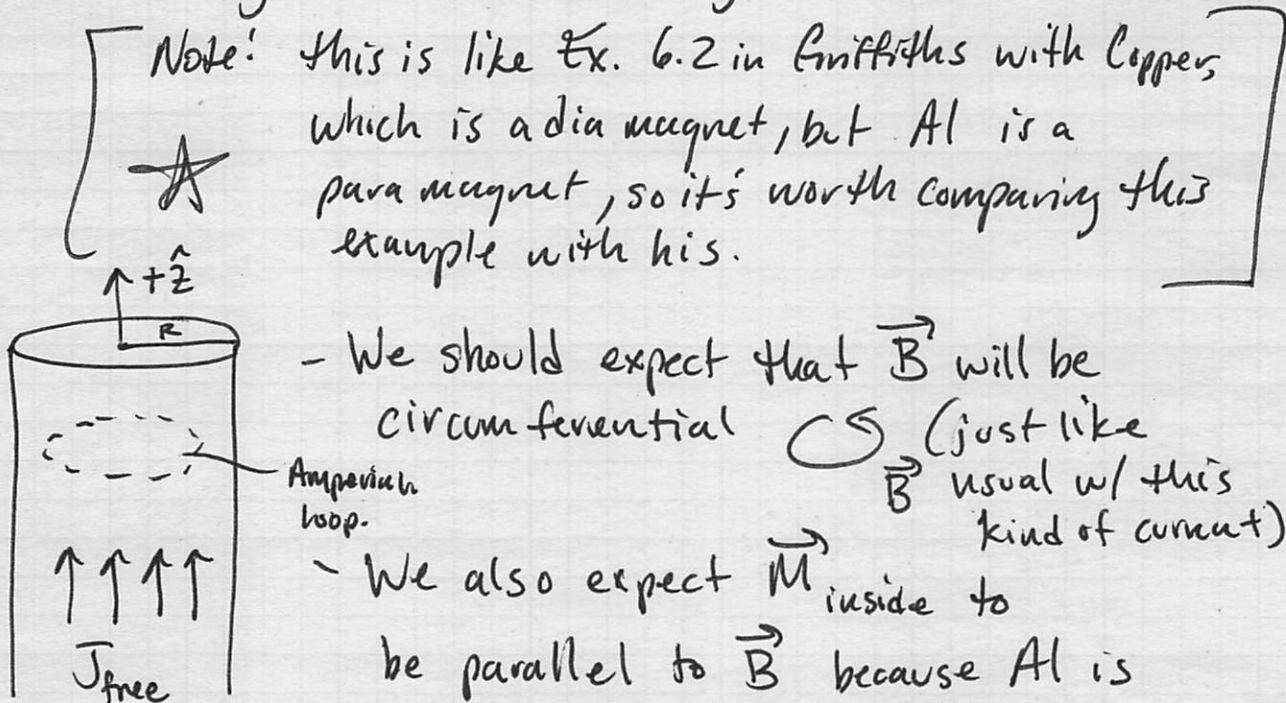 Note! this is like Ex. 6.2 in Griffiths with Copper,
which is a dia magnet, but Al is a
para magnet, so it's worth comparing this
example with his.
+ẑ
R
- We should expect that B⃗ will be
circumferential (just like
B⃗ usual w/ this
kind of current)
Amperian
loop.
- We also expect M⃗ inside to
be parallel to B⃗ because Al is
J⃗ free